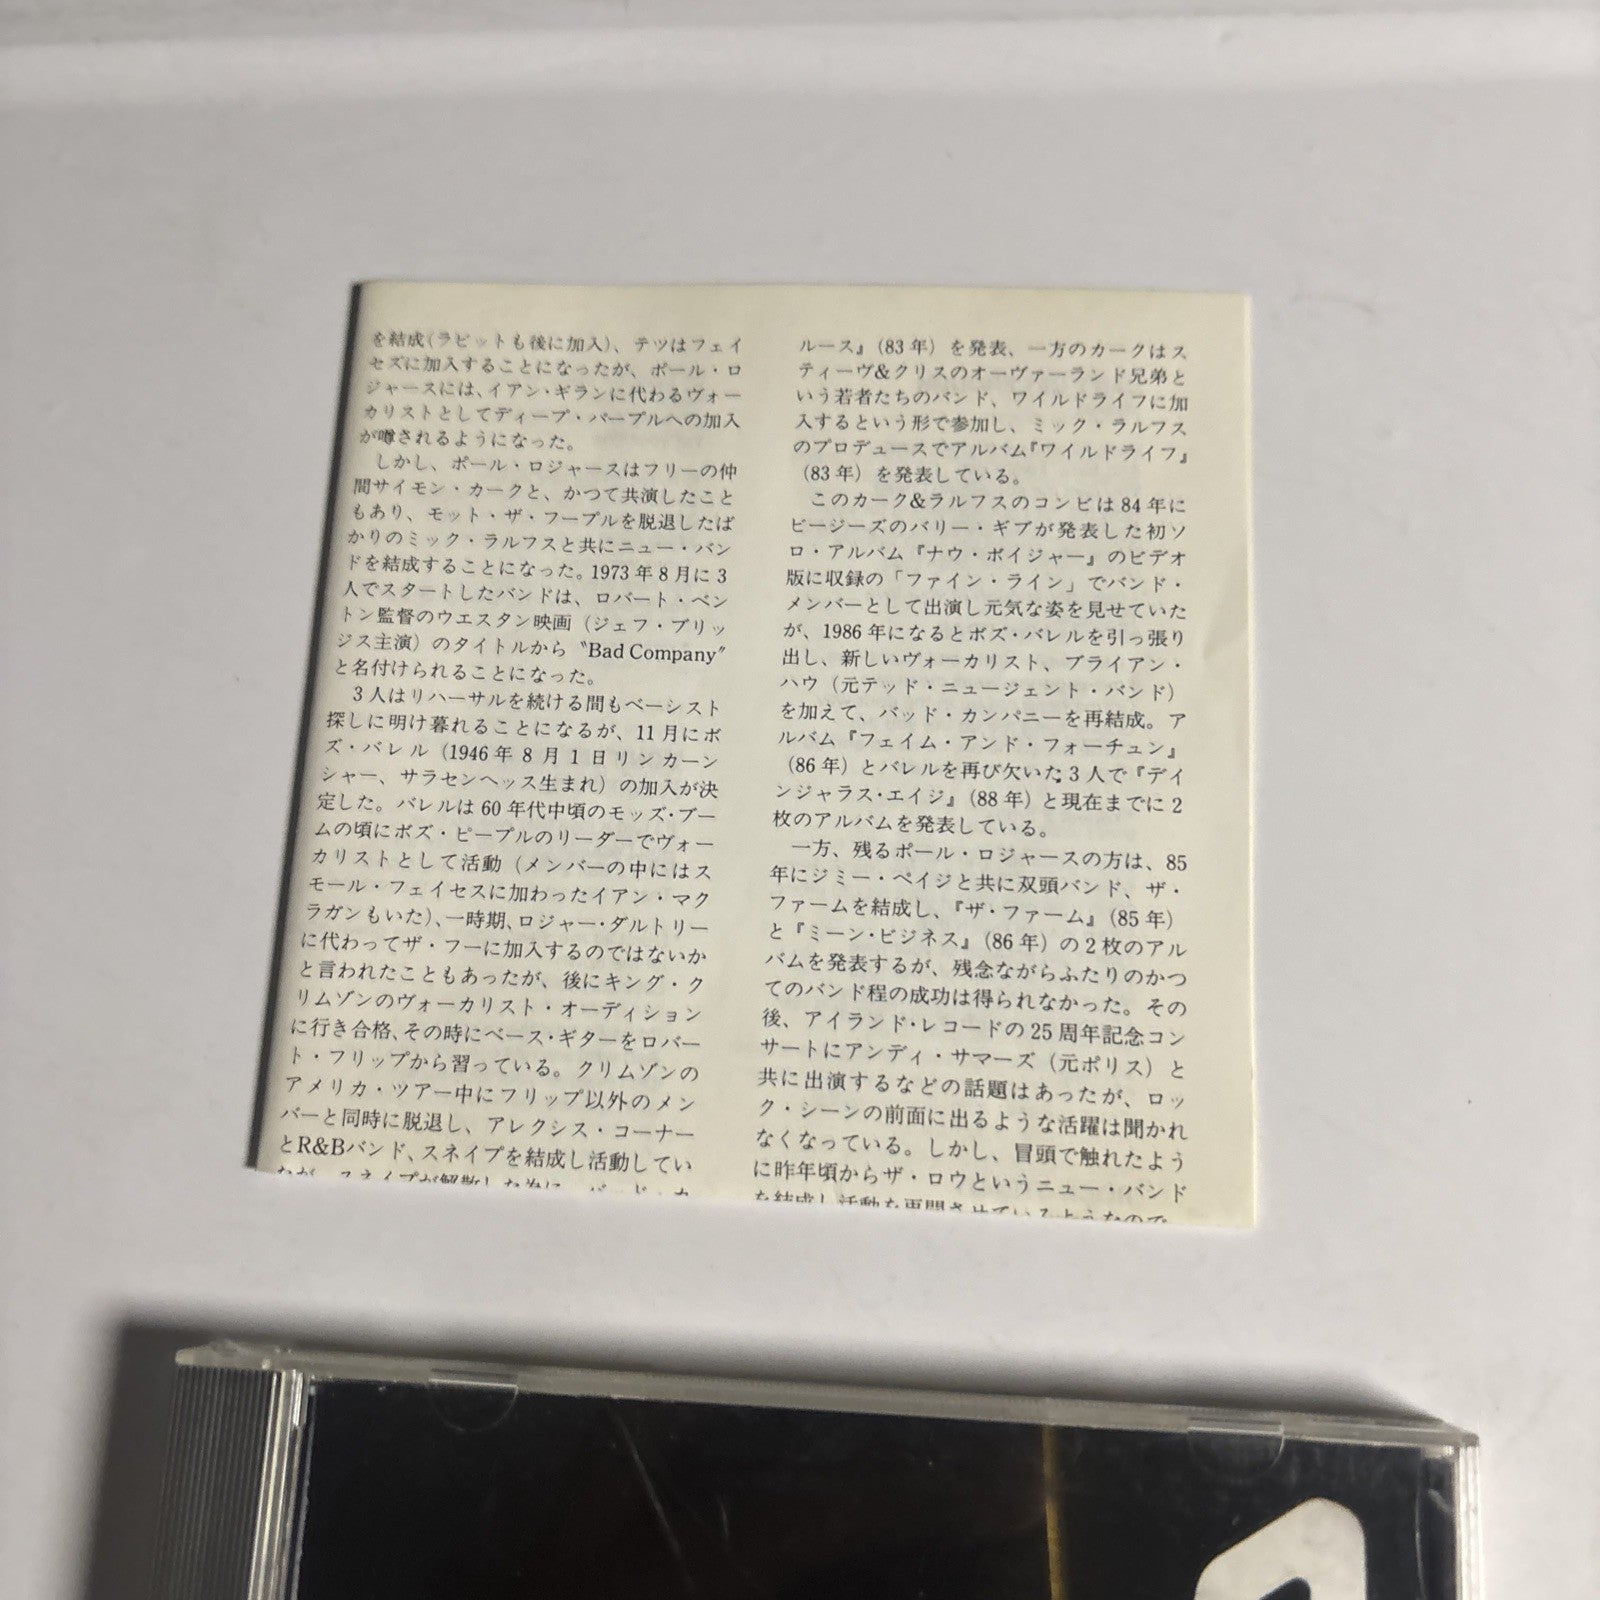 を結成(ラビットも後に加入)、テツはフェイ
セズに加入することになったが、ポール・ロ
ジャースには、イアン・ギランに代わるヴォー
カリストとしてディープ・パープルへの加入
が噂されるようになった。
しかし、ポール・ロジャースはフリーの仲
間サイモン・カークと、かつて共演したこと
もあり、モット・ザ・フープルを脱退したば
かりのミック・ラルフスと共にニュー・バン
ドを結成することになった。1973年8月に3
人でスタートしたバンドは、ロバート・ベン
トン監督のウエスタン映画(ジェフ・ブリッ
ジス主演)のタイトルから〝Bad Company〞
と名付けられることになった。
3人はリハーサルを続ける間もベーシスト
探しに明け暮れることになるが、11月にボ
ズ・バレル(1946年8月1日リンカーン
シャー、サラセンヘッス生まれ)の加入が決
定した。バレルは60年代中頃のモッズ・ブー
ムの頃にボズ・ピープルのリーダーでヴォー
カリストとして活動(メンバーの中にはス
モール・フェイセスに加わったイアン・マク
ラガンもいた)、一時期、ロジャー・ダルトリー
に代わってザ・フーに加入するのではないか
と言われたこともあったが、後にキング・ク
リムゾンのヴォーカリスト・オーディション
に行き合格、その時にベース・ギターをロバー
ト・フリップから習っている。クリムゾンの
アメリカ・ツアー中にフリップ以外のメン
バーと同時に脱退し、アレクシス・コーナー
とR&Bバンド、スネイプを結成し活動してい
たが、スネイプが解散した為に、バッド・カ
ルース』(83年)を発表、一方のカークはス
ティーヴ&クリスのオーヴァーランド兄弟と
いう若者たちのバンド、ワイルドライフに加
入するという形で参加し、ミック・ラルフス
のプロデュースでアルバム『ワイルドライフ』
(83年)を発表している。
このカーク&ラルフスのコンビは84年に
ビージーズのバリー・ギブが発表した初ソ
ロ・アルバム『ナウ・ボイジャー』のビデオ
版に収録の「ファイン・ライン」でバンド・
メンバーとして出演し元気な姿を見せていた
が、1986年になるとボズ・バレルを引っ張り
出し、新しいヴォーカリスト、ブライアン・
ハウ(元テッド・ニュージェント・バンド)
を加えて、バッド・カンパニーを再結成。ア
ルバム『フェイム・アンド・フォーチュン』
(86年)とバレルを再び欠いた3人で『デイ
ンジャラス・エイジ』(88年)と現在までに2
枚のアルバムを発表している。
一方、残るポール・ロジャースの方は、85
年にジミー・ペイジと共に双頭バンド、ザ・
ファームを結成し、『ザ・ファーム』(85年)
と『ミーン・ビジネス』(86年)の2枚のアル
バムを発表するが、残念ながらふたりのかつ
てのバンド程の成功は得られなかった。その
後、アイランド・レコードの25周年記念コン
サートにアンディ・サマーズ(元ポリス)と
共に出演するなどの話題はあったが、ロッ
ク・シーンの前面に出るような活躍は聞かれ
なくなっている。しかし、冒頭で触れたよう
に昨年頃からザ・ロウというニュー・バンド
を結成し活動を再開させているようなので、